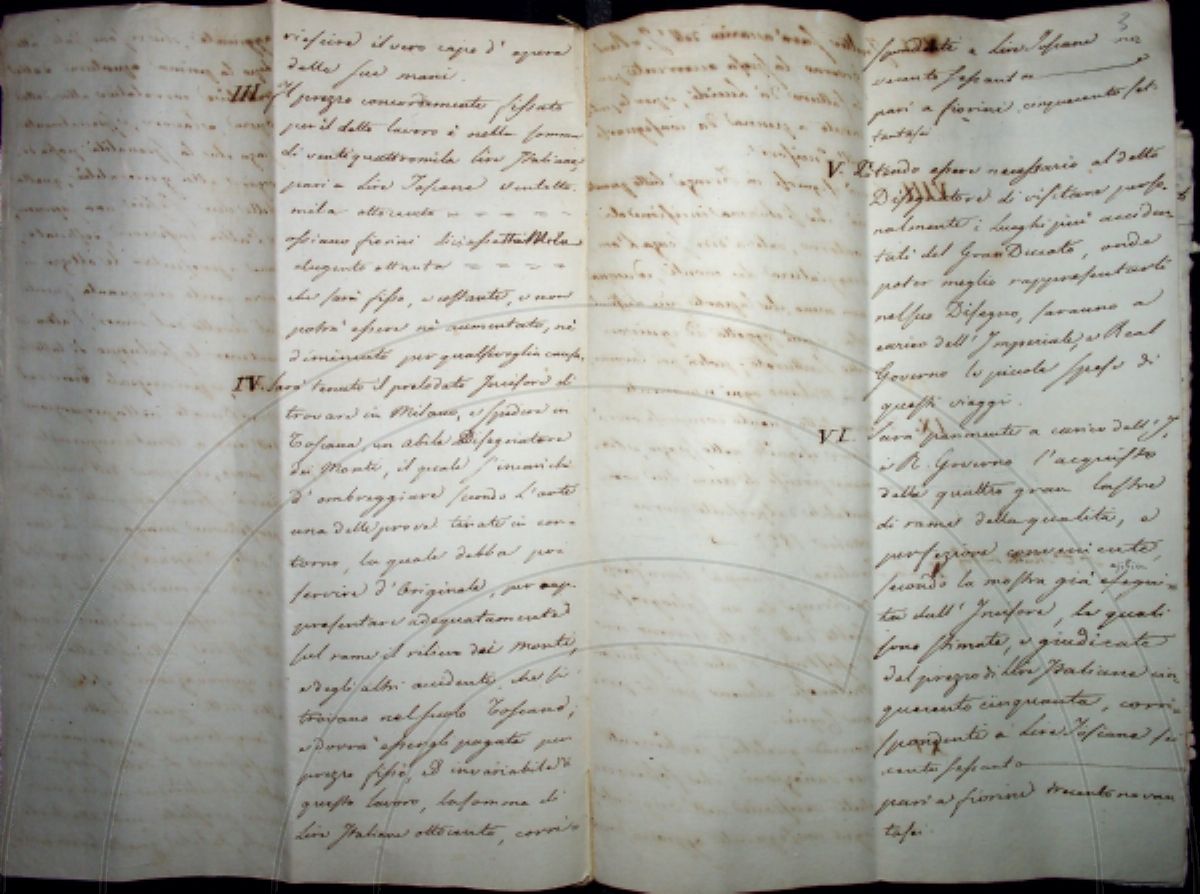 riescire il vero capo d'opera
delle sue mani.
III. Il prezzo concordemente fissato
per il detto lavoro è nella somma
di ventiquattromila lire Italiane,
pari a Lire Toscane ventotto
mila ottocento = = = =
ossiano fiorini diciassettemila
dugento ottanta = = = =
che sarà fisso, e costante, e non
potrà essere nè aumentato, nè
diminuito per qualsivoglia causa.
IV. Sarà tenuto il prelodato Incisore di
trovare in Milano, e spedire in
Toscana un abile Disegnatore
dei Monti, il quale s'incarichi
d'ombreggiare secondo l'arte
una delle prove tirate in con=
torno, la quale debba poi
servire d'Originale, per rap=
presentare adeguatamente
sul rame il rilievo dei monti,
e degli altri accidenti, che si
trovano nel suolo Toscano;
e dovrà essergli pagata per
prezzo fisso, ed invariabile di
questo lavoro, la somma di
Lire Italiane ottocento, corri=
3
spondenti a Lire Toscane no=
vecento sessanta
pari a fiorini cinquecento set=
tantasei
V. Essendo essere necessario al detto
Disegnatore di visitare perso=
nalmente i Luoghi più acciden=
tali del Gran Ducato, onde
poter meglio rappresentarli
nel suo Disegno, saranno a
carico dell'Imperiale, e Real
Governo le piccole spese di
questi viaggi.
VI. Sarà parimente a carico dell'I.
e R. Governo l'acquisto
delle quattro gran lastre
di rame della qualità, e
perfezione conveniente,
secondo la mostra già esegui=
ta dall'Incisore, le quali
sono stimate, e giudicate
del prezzo di Lire Italiane cin=
quecento cinquanta, corri=
spondenti a Lire Toscane se=
cento sessanta
pari a fiorini trecento novan
tasei.